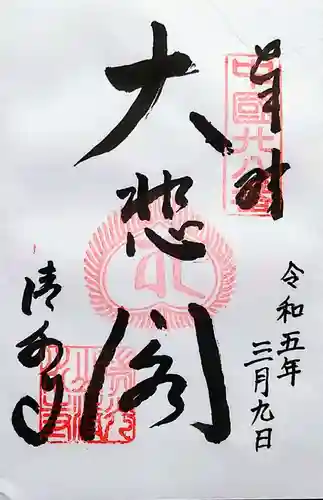 奉拝
中国廿八番
大悲閣
清水寺
令和五年
三月九日